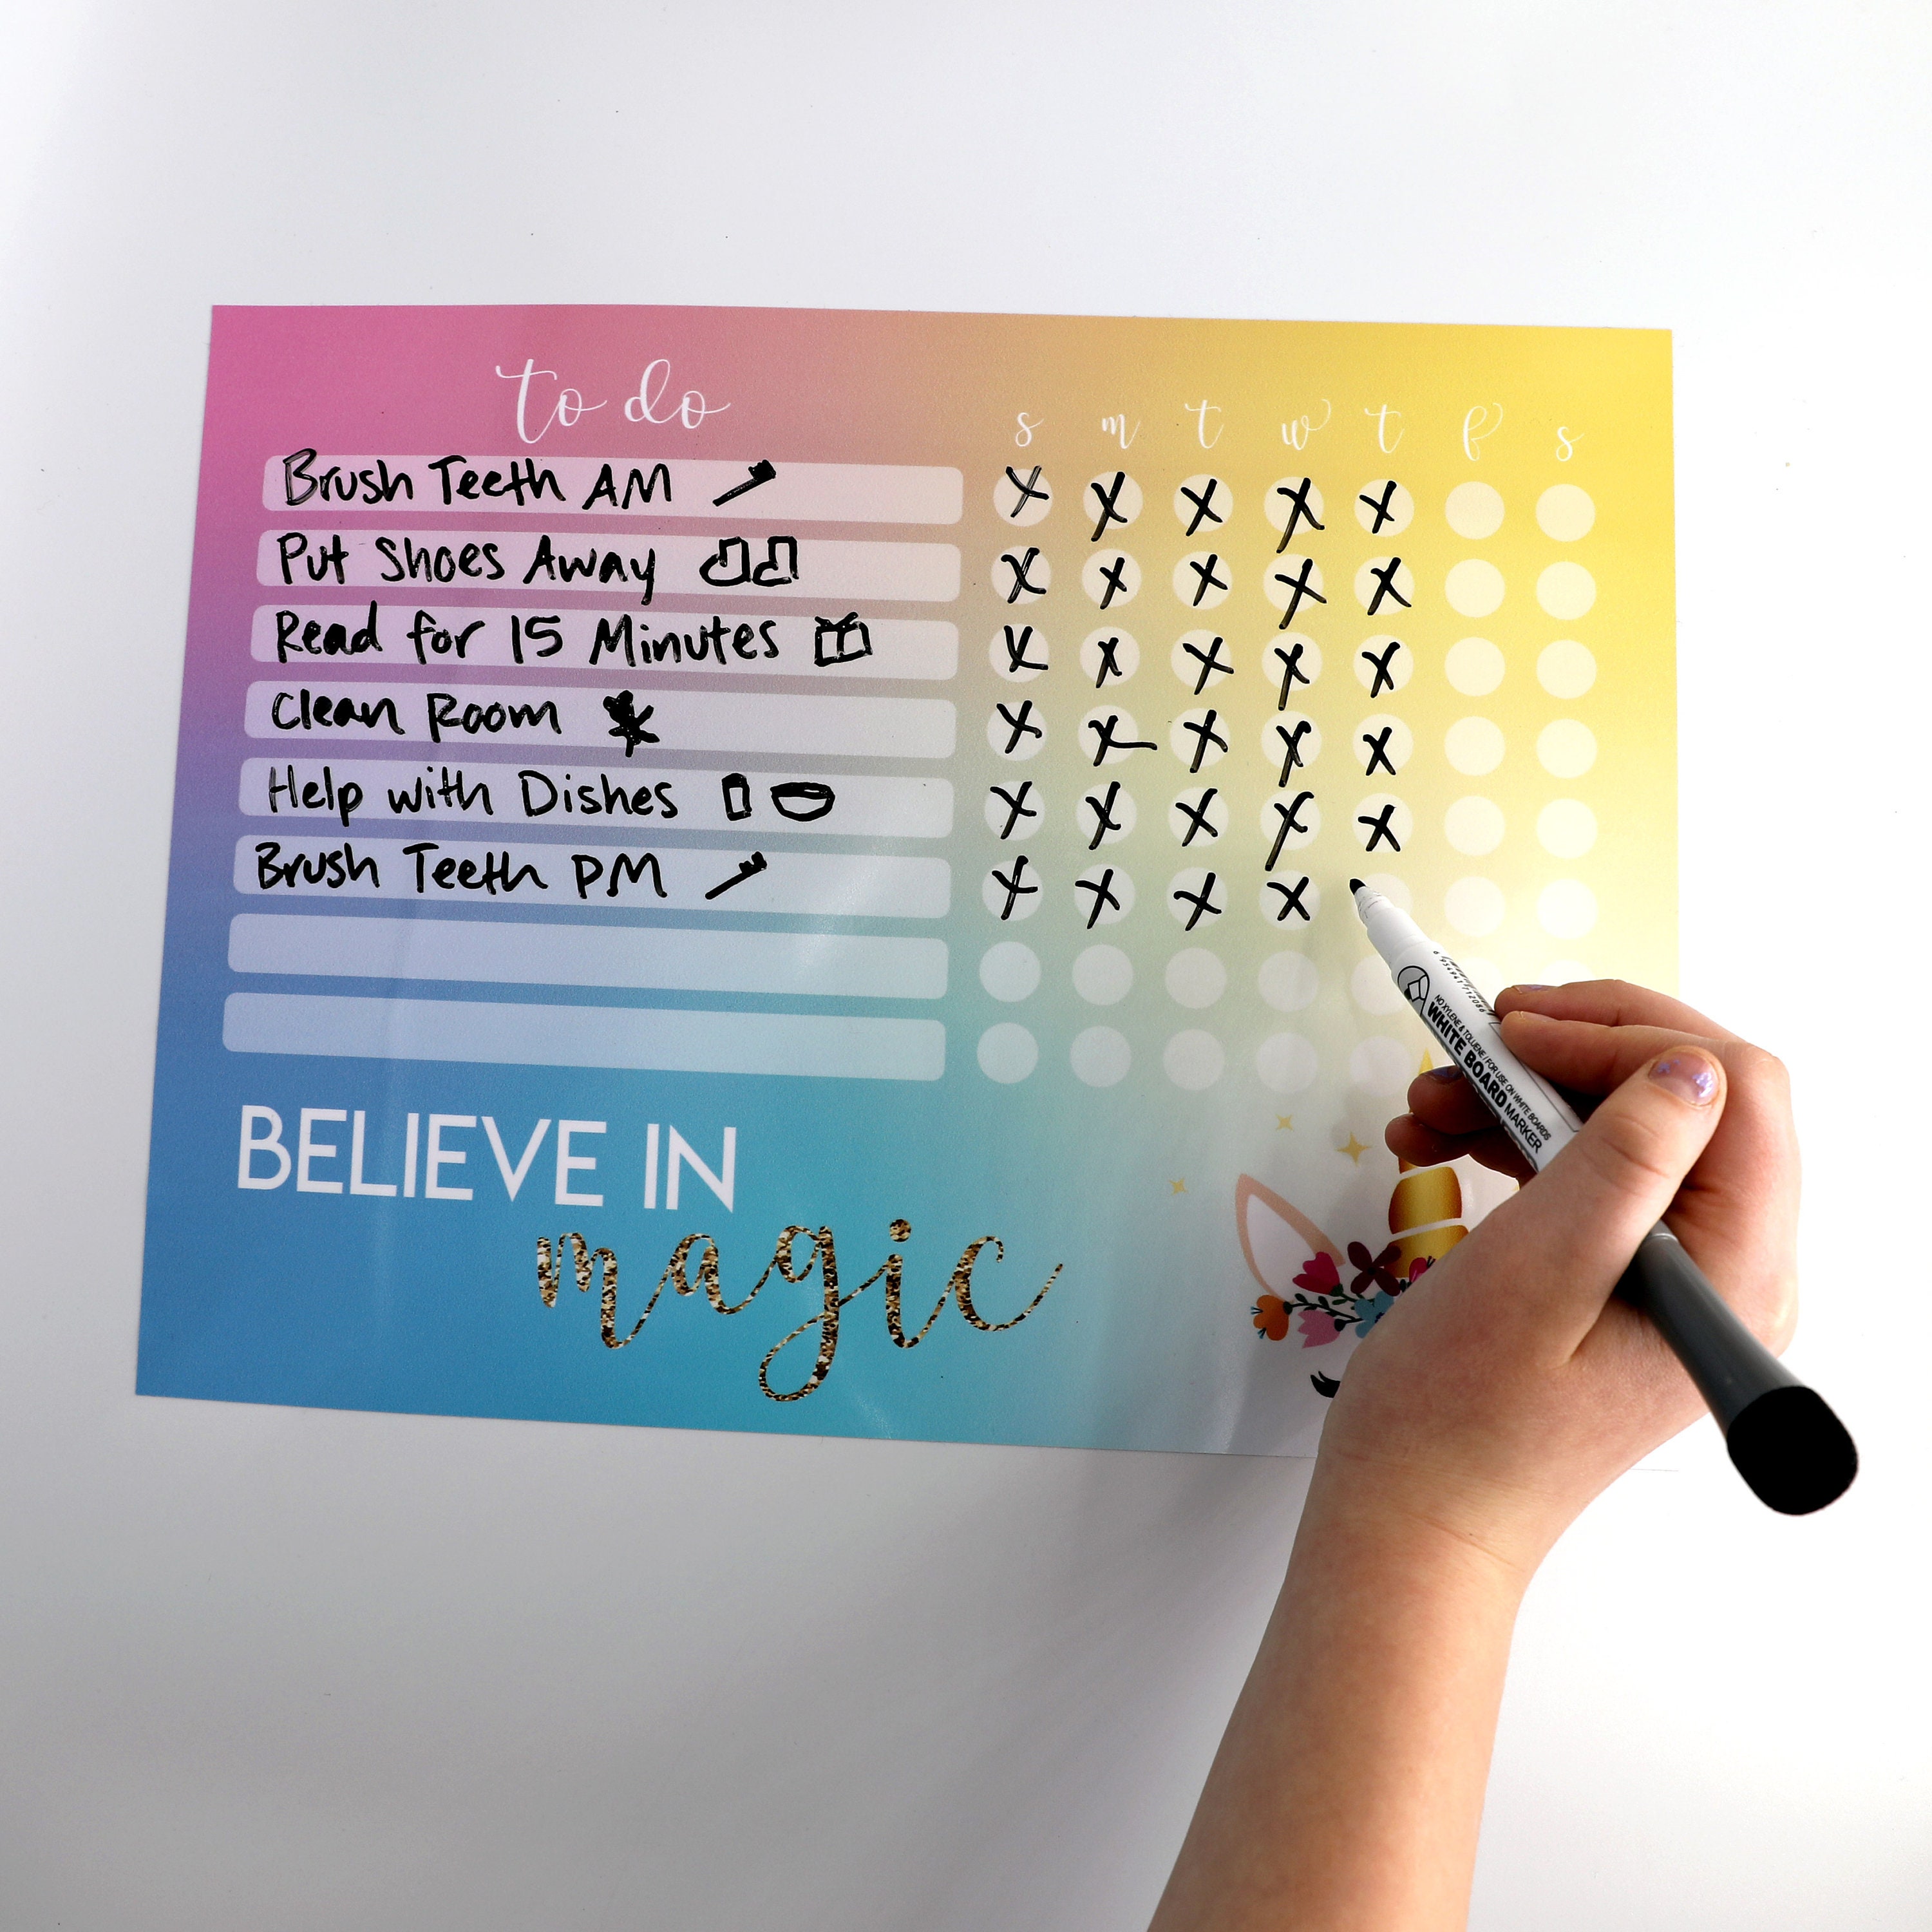 to do
s m t w t f s
Brush Teeth AM X X X X X
Put Shoes Away X X X X X
Read for 15 Minutes X X X X X
Clean Room X X X X X
Help with Dishes X X X X X
Brush Teeth PM X X X X
BELIEVE IN
magic
NO XYLENE & TOLUENE / FOR USE ON WHITE BOARDS
WHITE BOARD MARKER